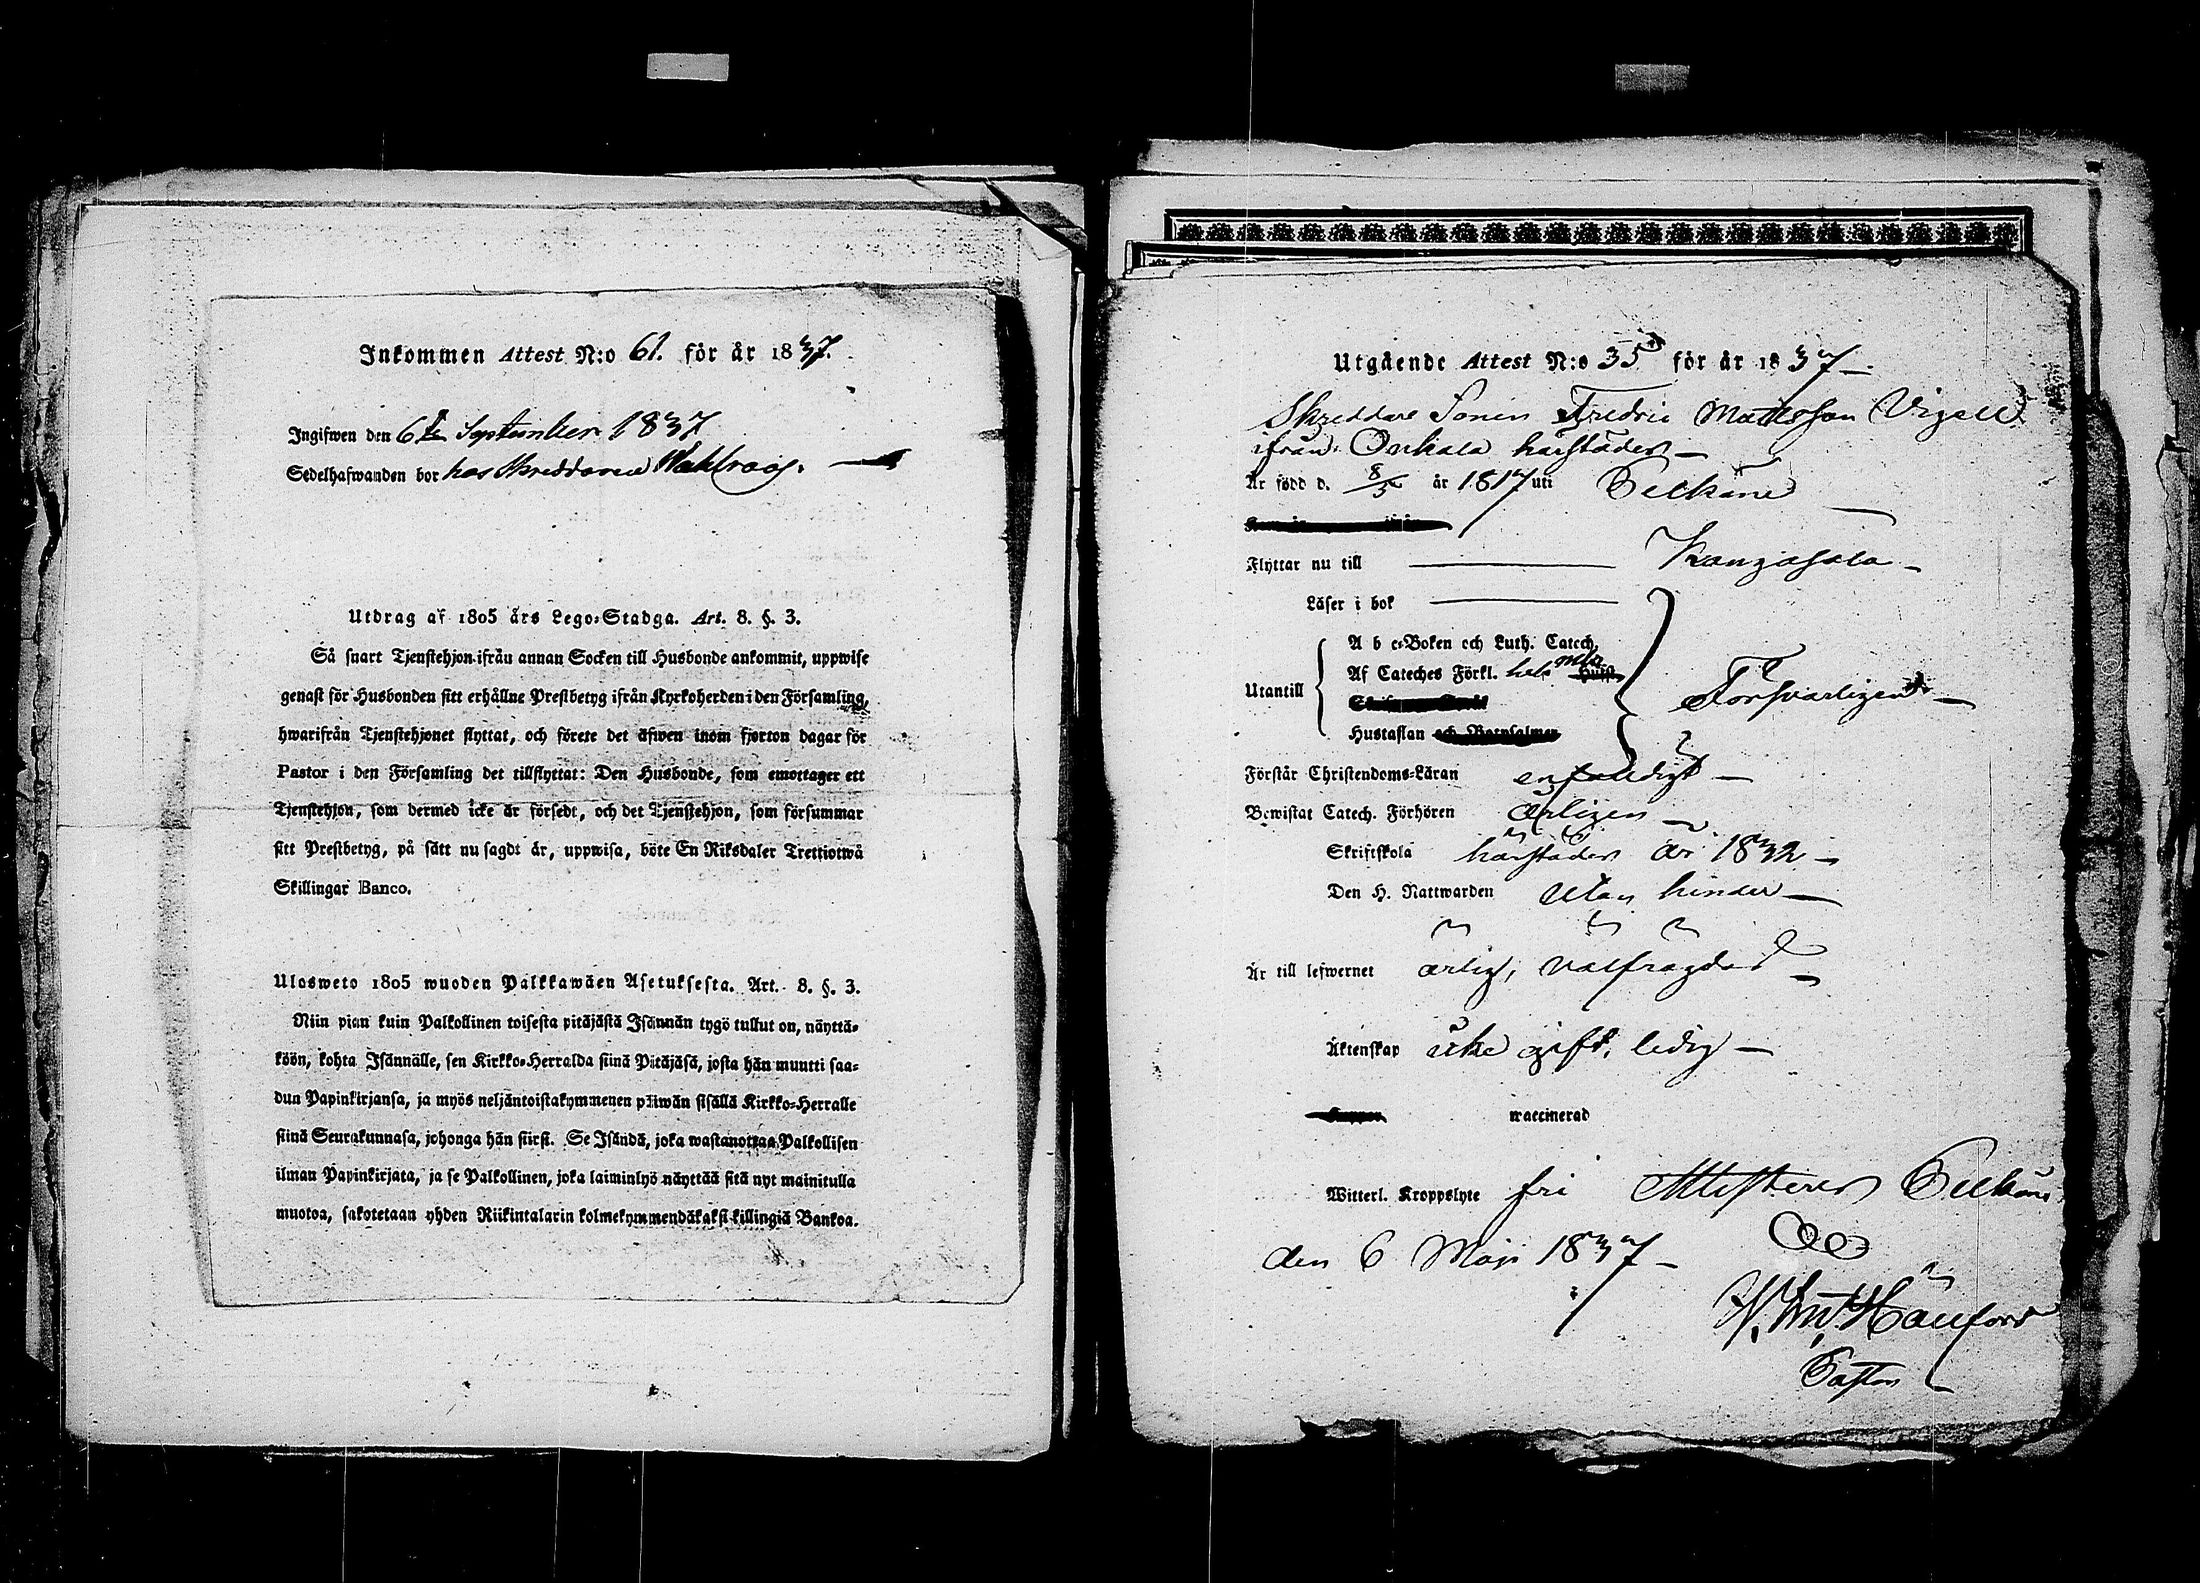 Inkommen Attest N:o 61. för år 1837.
Ingifwen den 6te September 1837
Sedelhafwanden bor hos Skreddaren Wahlroos.
Utdrag af 1805 års Lego-Stadga. Art. 8. §. 3.
Så snart Tjenstehjon ifrån annan Socken till Husbonde ankommit, uppwise
genast för Husbonden sitt erhållne Prestbetyg ifrån Kyrkoherden i den Församling,
hwarifrån Tjenstehjonet flyttat, och förete det äfwen inom fjorton dagar för
Pastor i den Församling det tillflyttat: Den Husbonde, som emottager ett
Tjenstehjon, som dermed icke är försedt, och det Tjenstehjon, som försummar
sitt Prestbetyg, på sätt nu sagdt är, uppwisa, böte En Riksdaler Trettiotwå
Skillingar Banco.
Ulosweto 1805 wuoden Palkkawäen Asetuksesta. Art. 8. §. 3.
Niin pian kuin Palkollinen toisesta pitäjästä Isännän tygö tullut on, näyttä-
köön, kohta Isännälle, sen Kirkko-Herralda siinä Pitäjäsä, josta hän muutti saa-
dun Papinkirjansa, ja myös neljäntoistakymmenen päiwän sisällä Kirkko-Herralle
siinä Seurakunnasa, johonga hän siirsi. Se Isändä, joka wastanottaa Palkollisen
ilman Papinkirjata, ja se Palkollinen, joka laiminlyö näyttää sitä nyt mainitulla
muotoa, sakotetaan yhden Riikintalarin kolmekymmendäkaksi killingiä Bankoa.
Utgående Attest N:o 35 för år 1837
Skreddare Sonen Fredric Mattsson Vigell
ifrån Onkala härstädes
Är född d. 8/5 år 1817 uti Pelkäne
Flyttar nu till Kangasala
Läser i bok
A b c-Boken och Luth. Catech.
Utantill Af Cateches Förkl.
Hustaflan och Botpsalmer
Försvarligen
Förstår Christendoms-Läran enfaldigt
Bewistat Catech. Förhören årligen
Skriftskola härstädes år 1832
Den H. Nattwarden utan hinder
Är till lefwernet ärlig, välfrägdad
Äktenskap icke gift, ledig
Koppor waccinerad
Witterl. Kroppslyte fri Attesterer Pelkäne
den 6 Maji 1837
Pastor